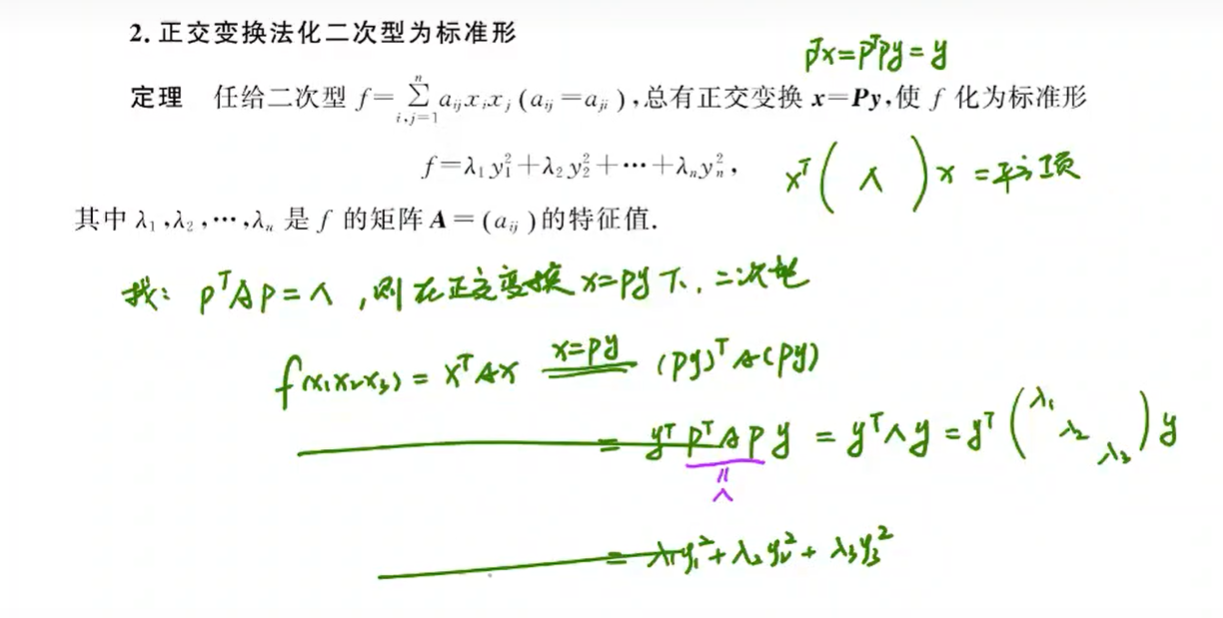 2. 正交变换法化二次型为标准形
Pᵀx=PᵀPy=y
定理 任给二次型 f=∑_{i,j=1}^{n} a_{ij}x_ix_j(a_{ij}=a_{ji}),总有正交变换 x=Py,使 f 化为标准形
f=λ₁y₁²+λ₂y₂²+⋯+λₙyₙ²,
xᵀ(Λ)x=平方项
其中 λ₁,λ₂,⋯,λₙ 是 f 的矩阵 A=(a_{ij})的特征值.
找: PᵀAP=Λ,则在正交变换 x=Py下,二次型
f(x₁x₂x₃)=xᵀAx x=Py (Py)ᵀA(Py)
=yᵀPᵀAPy=yᵀΛy=yᵀ(λ₁ λ₂ λ₃)y
Λ
=λ₁y₁²+λ₂y₂²+λ₃y₃²